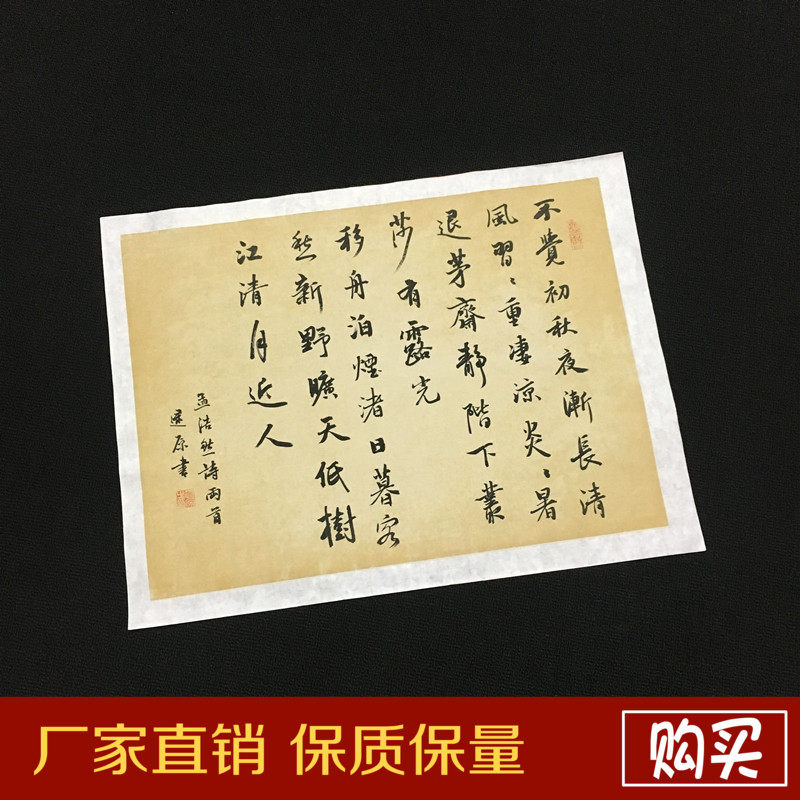 不覺初秋夜漸長清
風習〻重凄凉炎〻暑
退茅齋靜階下叢
莎有露光
移舟泊煙渚日暮客
愁新野曠天低樹
江清月近人
孟浩然詩兩首
原書
厂家直销 保质保量
购买